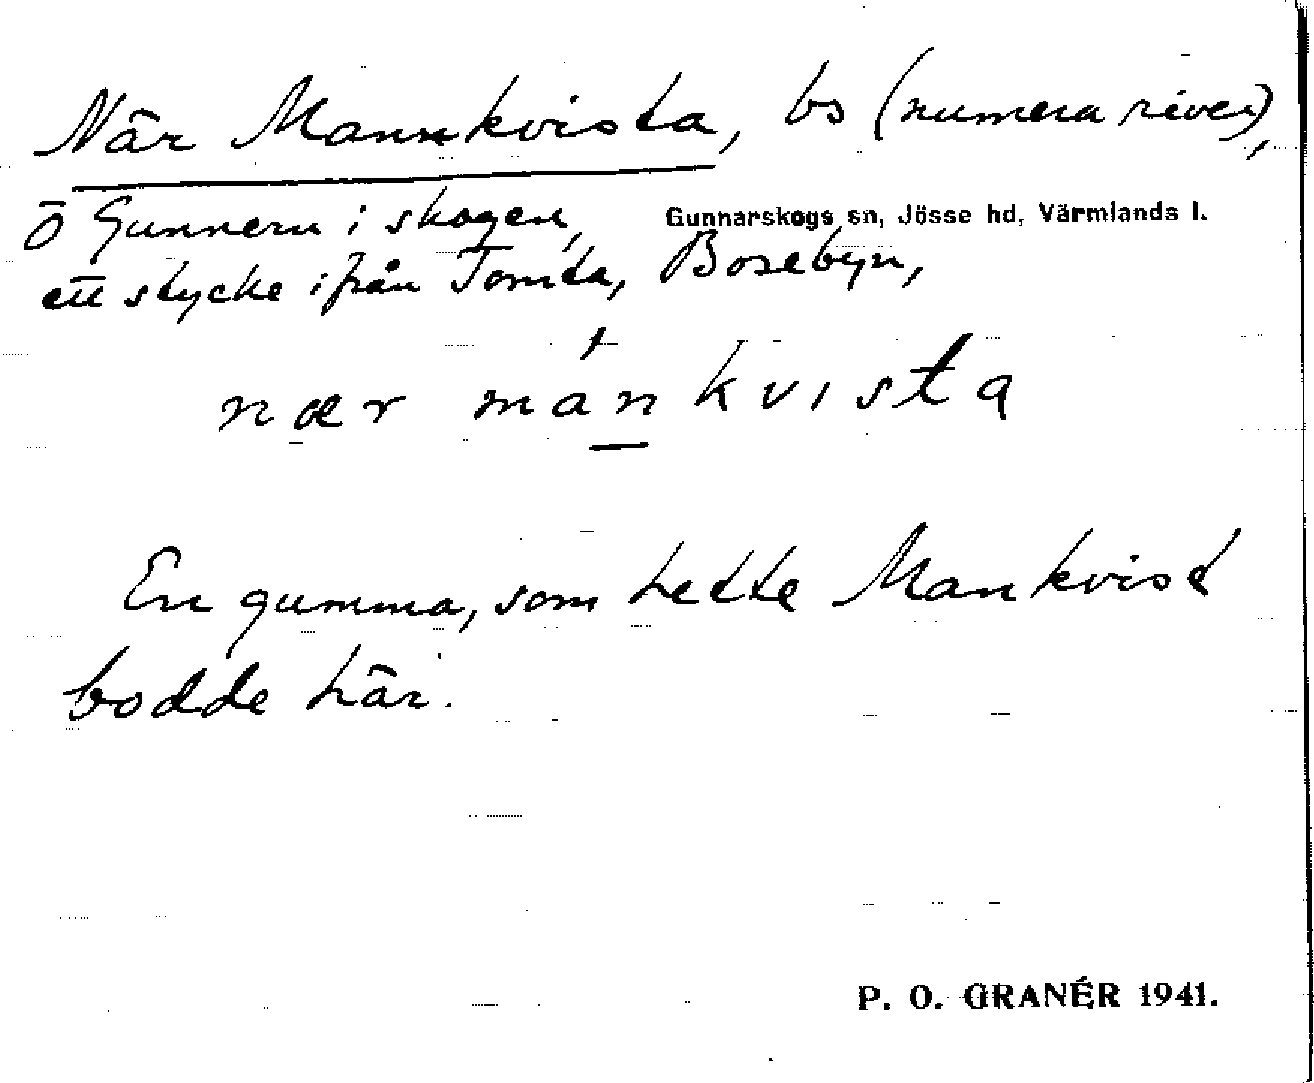 När Mannkvista, bs (numera rivet),
ö Gunnern i skogen, Gunnarskogs sn, Jösse hd, Värmlands l.
ett stycke ifrån Tomta, Bosebyn,
nær mánkvista
En gumma, som hette Mankvist
bodde här.
P. O. GRANÉR 1941.